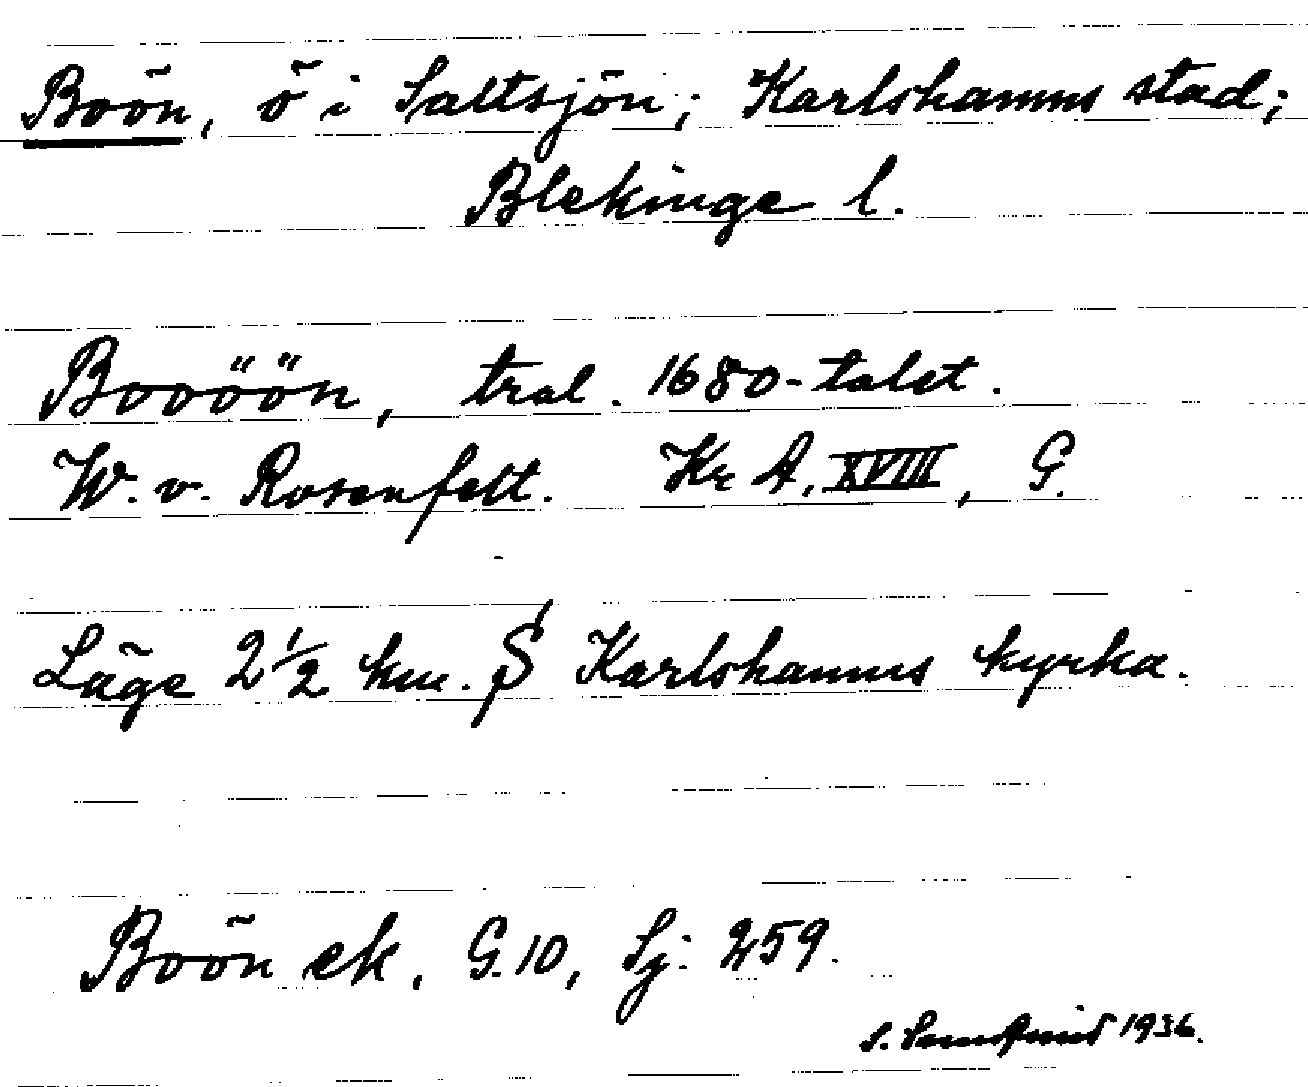 Boön, ö i Saltsjön; Karlshamns stad;
Blekinge l.
Booöön, tral. 1680-talet.
W. v. Rosenfelt. Kr A, XVIII, G.
Läge 2 1/2 km. S Karlshamns kyrka.
Boön ek. G. 10, Sj: 259.
S. 1936.